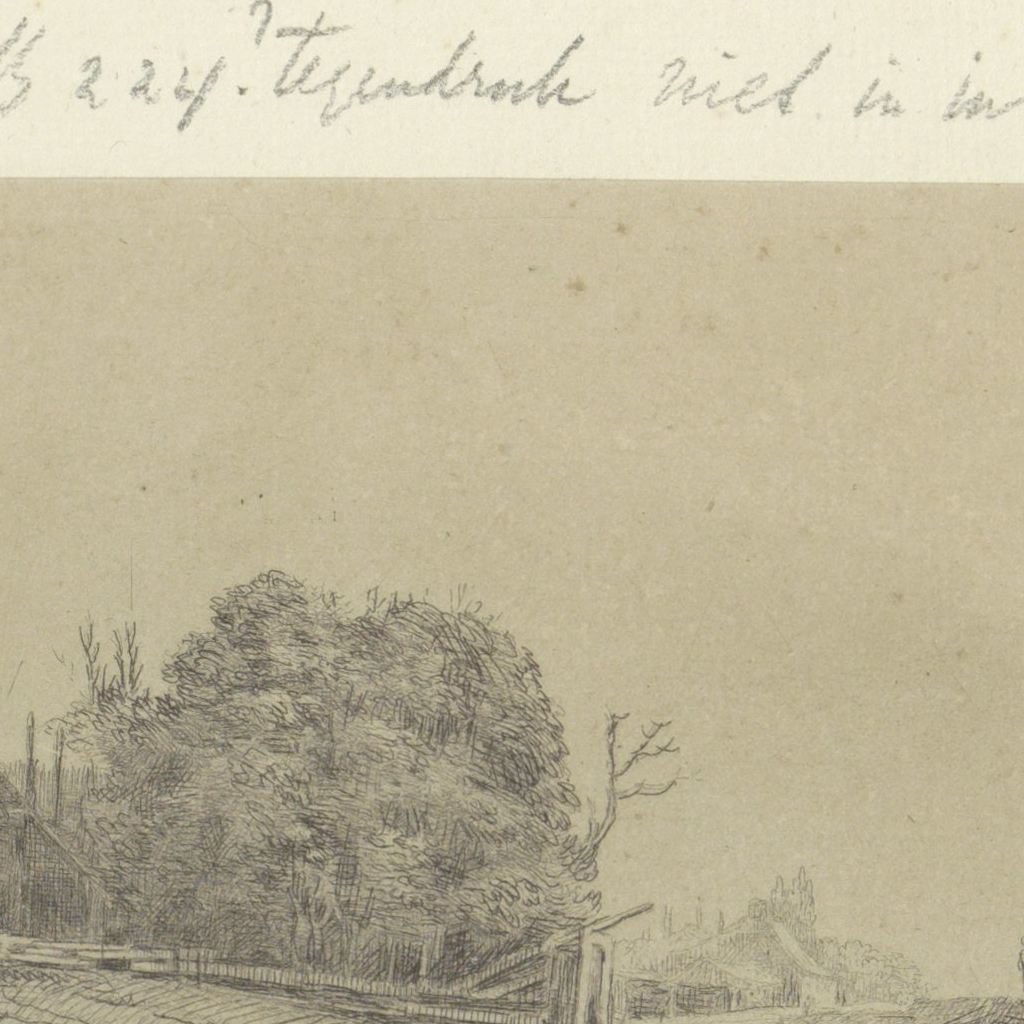 B 224. ? Tegendruk niet in in